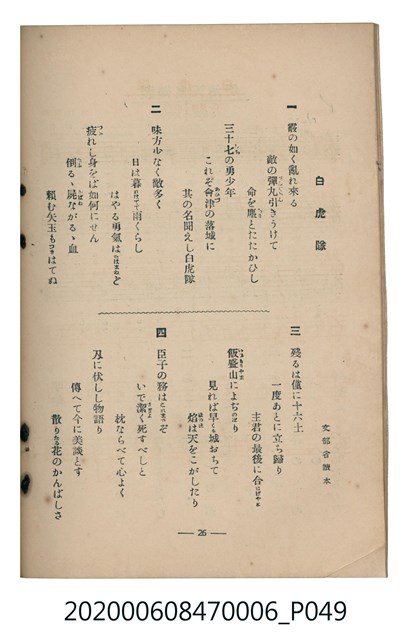 白虎隊
文部省讀本
一 霰の如く亂れ來る
敵の彈丸引きうけて
命を塵とたたかひし
三十七の勇少年
これぞ會津の落城に
其の名聞えし白虎隊
二 味方少なく敵多く
日は暮れて雨くらし
はやる勇氣はたわまねど
疲れし身をば如何にせん
倒るゝ屍ながるゝ血
賴む矢玉もつきはてぬ
三 殘るは僅に十六士
一度あとに立ち歸り
主君の最後に合はばやと
飯盛山によぢのぼり
見れば早く城おちて
焰は天をこがしたり
四 臣子の務はこれまでぞ
いで潔く死すべしと
枕ならべて心よく
刄に伏しし物語り
傳へて今に美談とす
散りたる花のかんばしさ
— 26 —
202000608470006_P049